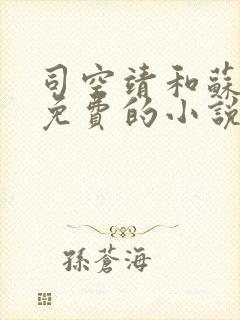 司空靖和蘇
免費的小說
孫蒼海